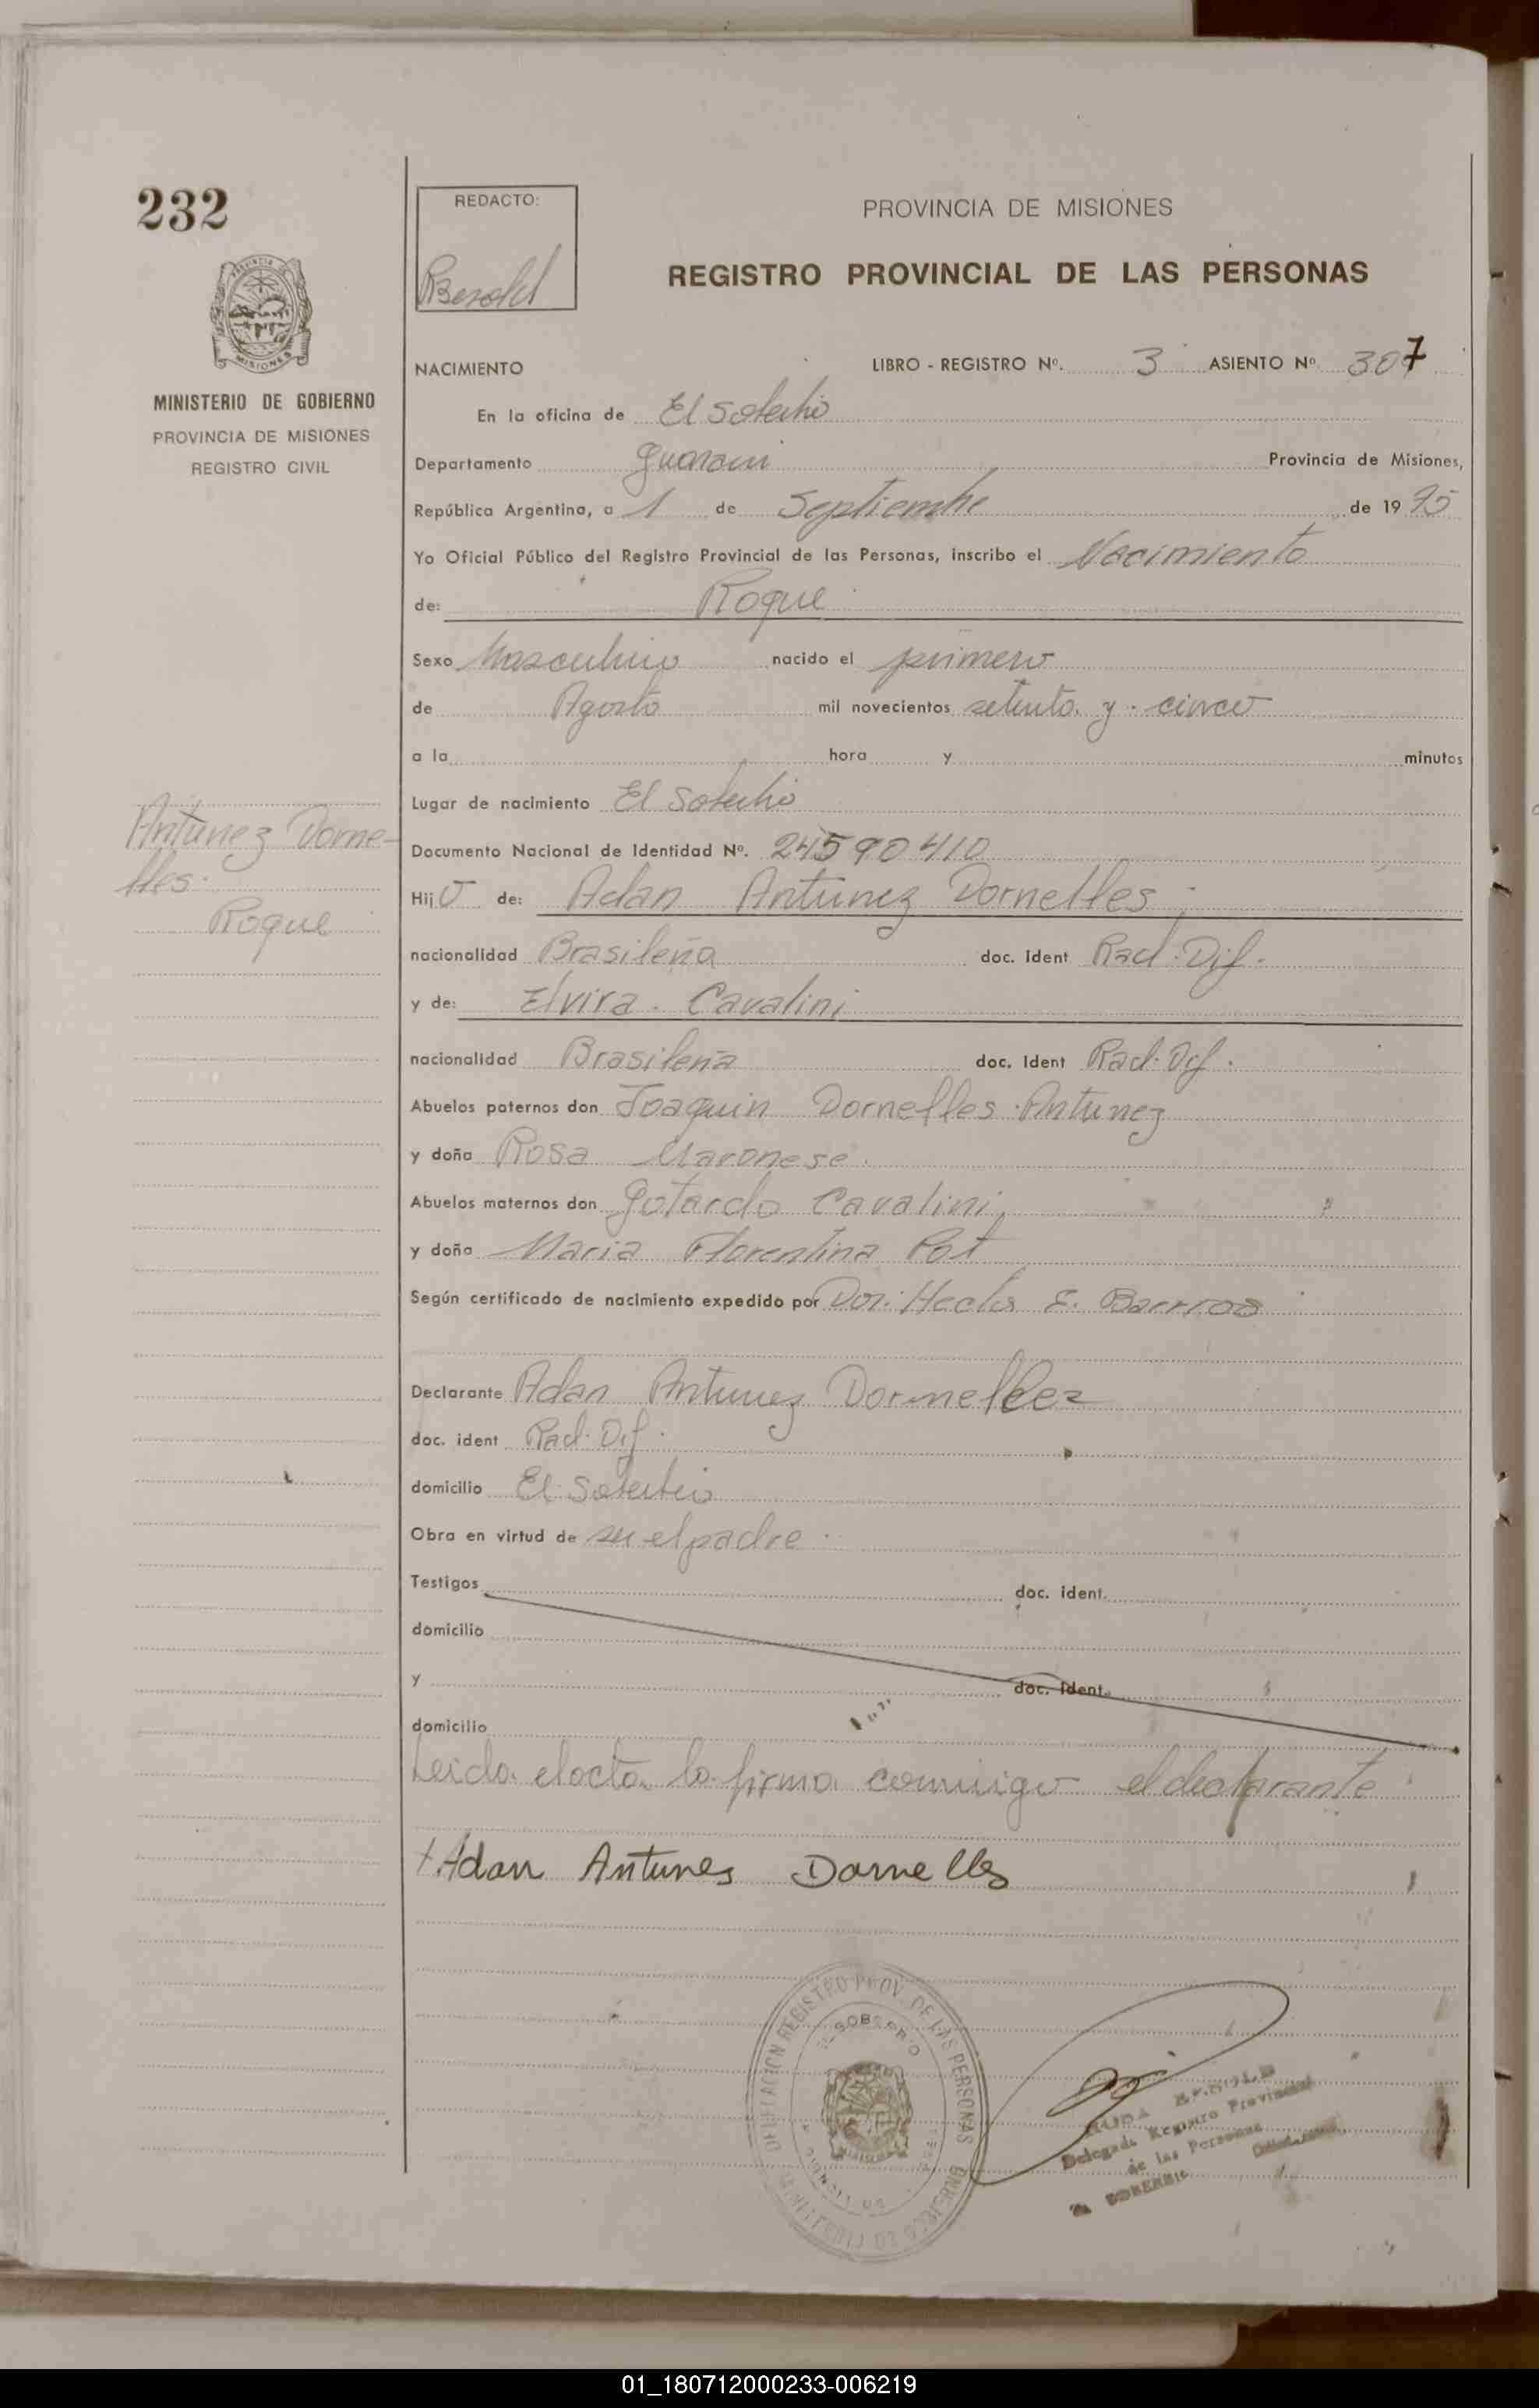 232
REDACTO:
PROVINCIA DE MISIONES
REGISTRO PROVINCIAL DE LAS PERSONAS
MISIONES
NACIMIENTO
LIBRO - REGISTRO Nº. 3 ASIENTO Nº. 307
MINISTERIO DE GOBIERNO
PROVINCIA DE MISIONES
REGISTRO CIVIL
En la oficina de El Soberbio
Departamento Guarani Provincia de Misiones,
República Argentina, a 1 de Septiembre de 19 75
Yo Oficial Público del Registro Provincial de las Personas, inscribo el Nacimiento
de: Roque
Sexo Masculino nacido el primero
de Agosto mil novecientos setenta y cinco
a la hora y minutos
Lugar de nacimiento El Soberbio
Antunez Dorne-
lles.
Roque
Documento Nacional de Identidad Nº. 24590410
Hijo de: Adan Antunez Dornelles
nacionalidad Brasileña doc. ident Rad. Dif.
y de: Elvira Cavalini
nacionalidad Brasileña doc. Ident Rad. Dif.
Abuelos paternos don Joaquin Dornelles Antunez
y doña Rosa Maronese
Abuelos maternos don Gotardo Cavalini
y doña Maria Florentina Pot
Según certificado de nacimiento expedido por Dor. Hector E. Barrios
Declarante Adan Antunez Dornelles
doc. ident Rad. Dif.
domicilio El Soberbio
Obra en virtud de ser el padre
Testigos doc. ident.
domicilio
y doc. ident.
domicilio
Leida el acta la firma conmigo el declarante
Adan Antunes Dornelles
REGISTRO PROV. DE LAS PERSONAS
Delegada Registro Provincial
de las Personas
01_180712000233-006219